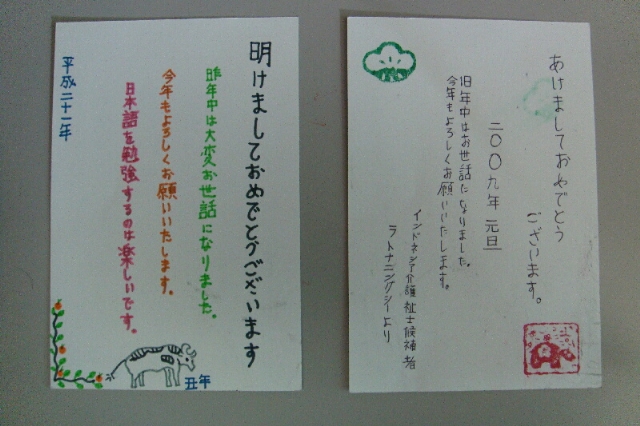 明けましておめでとうございます
昨年中は大変お世話になりました。
今年もよろしくお願いいたします。
日本語を勉強するのは楽しいです。
平成二十一年
丑年
あけましておめでとう
ございます。
二〇〇九年 元旦
旧年中はお世話になりました。
今年もよろしくお願いいたします。
インドネシア介護福祉士候補者
ラトナニングシーより